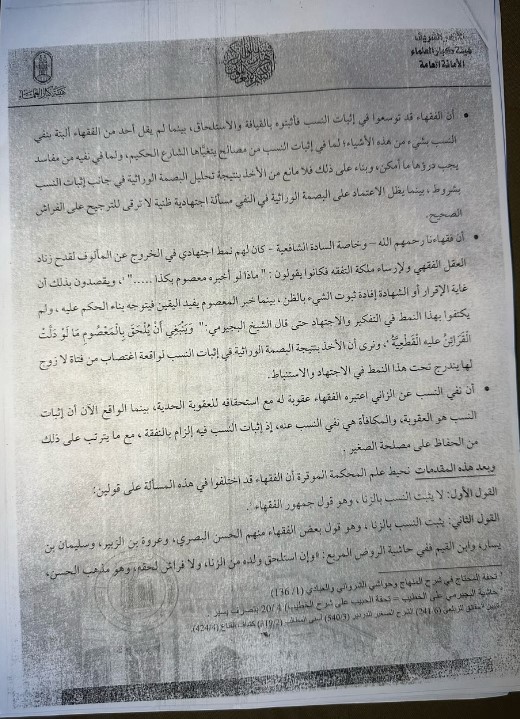 الأزهر الشريف
هيئة كبار العلماء
الأمانة العامة
هيئة كبار العلماء
• أن الفقهاء قد توسعوا في إثبات النسب فأثبتوه بالقيافة والاستلحاق، بينما لم يقل أحد من الفقهاء ألبتة بنفي
النسب بشيء من هذه الأشياء؛ لما في إثبات النسب من مصالح يتغياها الشارع الحكيم، ولما في نفيه من مفاسد
يجب درؤها ما أمكن، وبناء على ذلك فلا مانع من الأخذ بنتيجة تحليل البصمة الوراثية في جانب إثبات النسب
بشروط، بينما يظل الاعتماد على البصمة الوراثية في النفي مسألة اجتهادية ظنية لا ترقى للترجيح على الفراش
الصحيح.
• أن فقهاءنا رحمهم الله – وخاصة السادة الشافعية - كان لهم نمط اجتهادي في الخروج عن المألوف لقدح زناد
العقل الفقهي ولإرساء ملكة التفقه فكانوا يقولون : " ماذا لو أخبره معصوم بكذا ....."، ويقصدون بذلك أن
غاية الإقرار أو الشهادة إفادة ثبوت الشيء بالظن، بينما خبر المعصوم يفيد اليقين فيتوجه بناء الحكم عليه ، ولم
يكتفوا بهذا النمط في التفكير والاجتهاد حتى قال الشيخ البجيرمي:" وَيَنْبَغِي أَنْ يُلْحَقَ بِالْمَعْصُومِ مَا لَوْ دَلَّتْ
الْقَرَائِنُ عليه الْقَطْعِيَّةُ"، ونرى أن الأخذ بنتيجة البصمة الوراثية في إثبات النسب لواقعة اغتصاب من فتاة لا زوج
لها يندرج تحت هذا النمط في الاجتهاد والاستنباط.
• أن نفي النسب عن الزاني اعتبره الفقهاء عقوبة له مع استحقاقه للعقوبة الحدية، بينما الواقع الآن أن إثبات
النسب هو العقوبة، والمكافأة هي نفي النسب عنه، إذ إثبات النسب فيه إلزام بالنفقة ، مع ما يترتب على ذلك
من الحفاظ على مصلحة الصغير .
وبعد هذه المقدمات نحيط علم المحكمة الموقرة أن الفقهاء قد اختلفوا في هذه المسألة على قولين؛
القول الأول: لا يثبت النسب بالزنا ، وهو قول جمهور الفقهاء.
القول الثاني: يثبت النسب بالزنا ، وهو قول بعض الفقهاء منهم الحسن البصري، وعروة بن الزبير، وسليمان بن
يسار، وابن القيم ففي حاشية الروض المربع: «وإن استلحق ولده من الزنا، ولا فراش لحقه، وهو مذهب الحسن،
تحفة المحتاج في شرح المنهاج وحواشي الشرواني والعبادي (1/ 136)
حاشية البجيرمي على الخطيب = تحفة الحبيب على شرح الخطيب) 4/ 20 بتصرف يسير
(6/ 241) الشرح الصغير للدردير (3/ 540) أسنى المطالب (2/ 319) كشاف القناع (4/ 424)